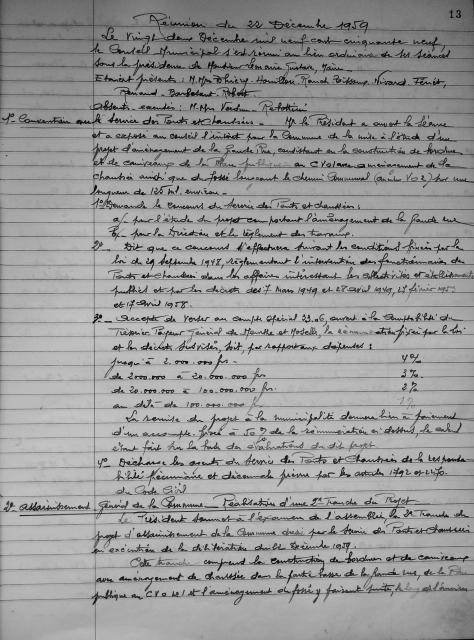 13
Réunion du 22 Décembre 1959
Le Vingt deux Décembre mil neuf cent cinquante neuf,
le Conseil Municipal s'est réuni au lieu ordinaire de ses séances
sous la présidence de Monsieur Gustave, Maire.
Etaient présents : M.Mrs Thiéry
Renaud - Barbesant Robert
Absents excusés : M.Mrs Verdun
1° Convention avec le Service des Ponts et Chaussées. - Mr le Président a ouvert la séance
et a exposé au conseil l'intérêt pour la Commune de la mise à l'étude d'un
projet d'aménagement de la Grande Rue, consistant en la construction de bordures
et de caniveaux de la publique au CV aménagement de la
chaussée ainsi que du fossé longeant le chemin Communal (ancien V.O 2) sur une
longueur de 125 ml. environ.
1° Demande le concours du Service des Ponts et chaussées :
a/ pour l'étude du projet comportant l'aménagement de la Grande rue
b/ pour la Direction et le règlement des travaux.
2° - Dit que ce concours s'effectuera suivant les conditions fixées par la
loi du 29 Septembre 1948, réglementant l'intervention des fonctionnaires des
Ponts et Chaussées dans les affaires intéressant les collectivités et établissements
publics et par les décrets des 7 Mars 1949 et 28 Avril 1949, 27 février
et 17 Avril 1958.
3° - Accepte de verser au compte spécial 23.06, ouvert à la Comptabilité du
Trésorier Payeur Général de Meurthe et Moselle, la rémunération fixée par la loi
et les décrets susvisés, soit, par rapport aux dépenses :
jusqu'à 2.000.000 frs. 4%
de 2000.000 à 20.000.000 frs 3%.
de 20.000.000 à 100.000.000 frs. 2%
au delà de 100.000.000 frs 1%
La remise du projet à la municipalité donnera lieu à paiement
d'un acompte fixé à 50% de la rémunération ci-dessus, le calcul
étant fait sur la base des évaluations du dit projet
4° Décharge les agents du Service des Ponts et Chaussées de la responsa
bilité pécuniaire et décennale prévue par les articles 1792 et 2270
du Code Civil
2° Assainissement Général de la Commune - Réalisation d'une 2e Tranche du Projet
Le Président soumet à l'examen de l'assemblée la 2e Tranche du
projet d'assainissement de la Commune dressé par le Service des Ponts et Chaussées
en exécution de la délibération du Décembre 1959.
Cette tranche comprend la construction de bordures et de caniveaux
avec aménagement de chaussées dans la partie basse de la grande rue, de la
publique au CV et l'aménagement du fossé y faisant suite, le long de l'ancien